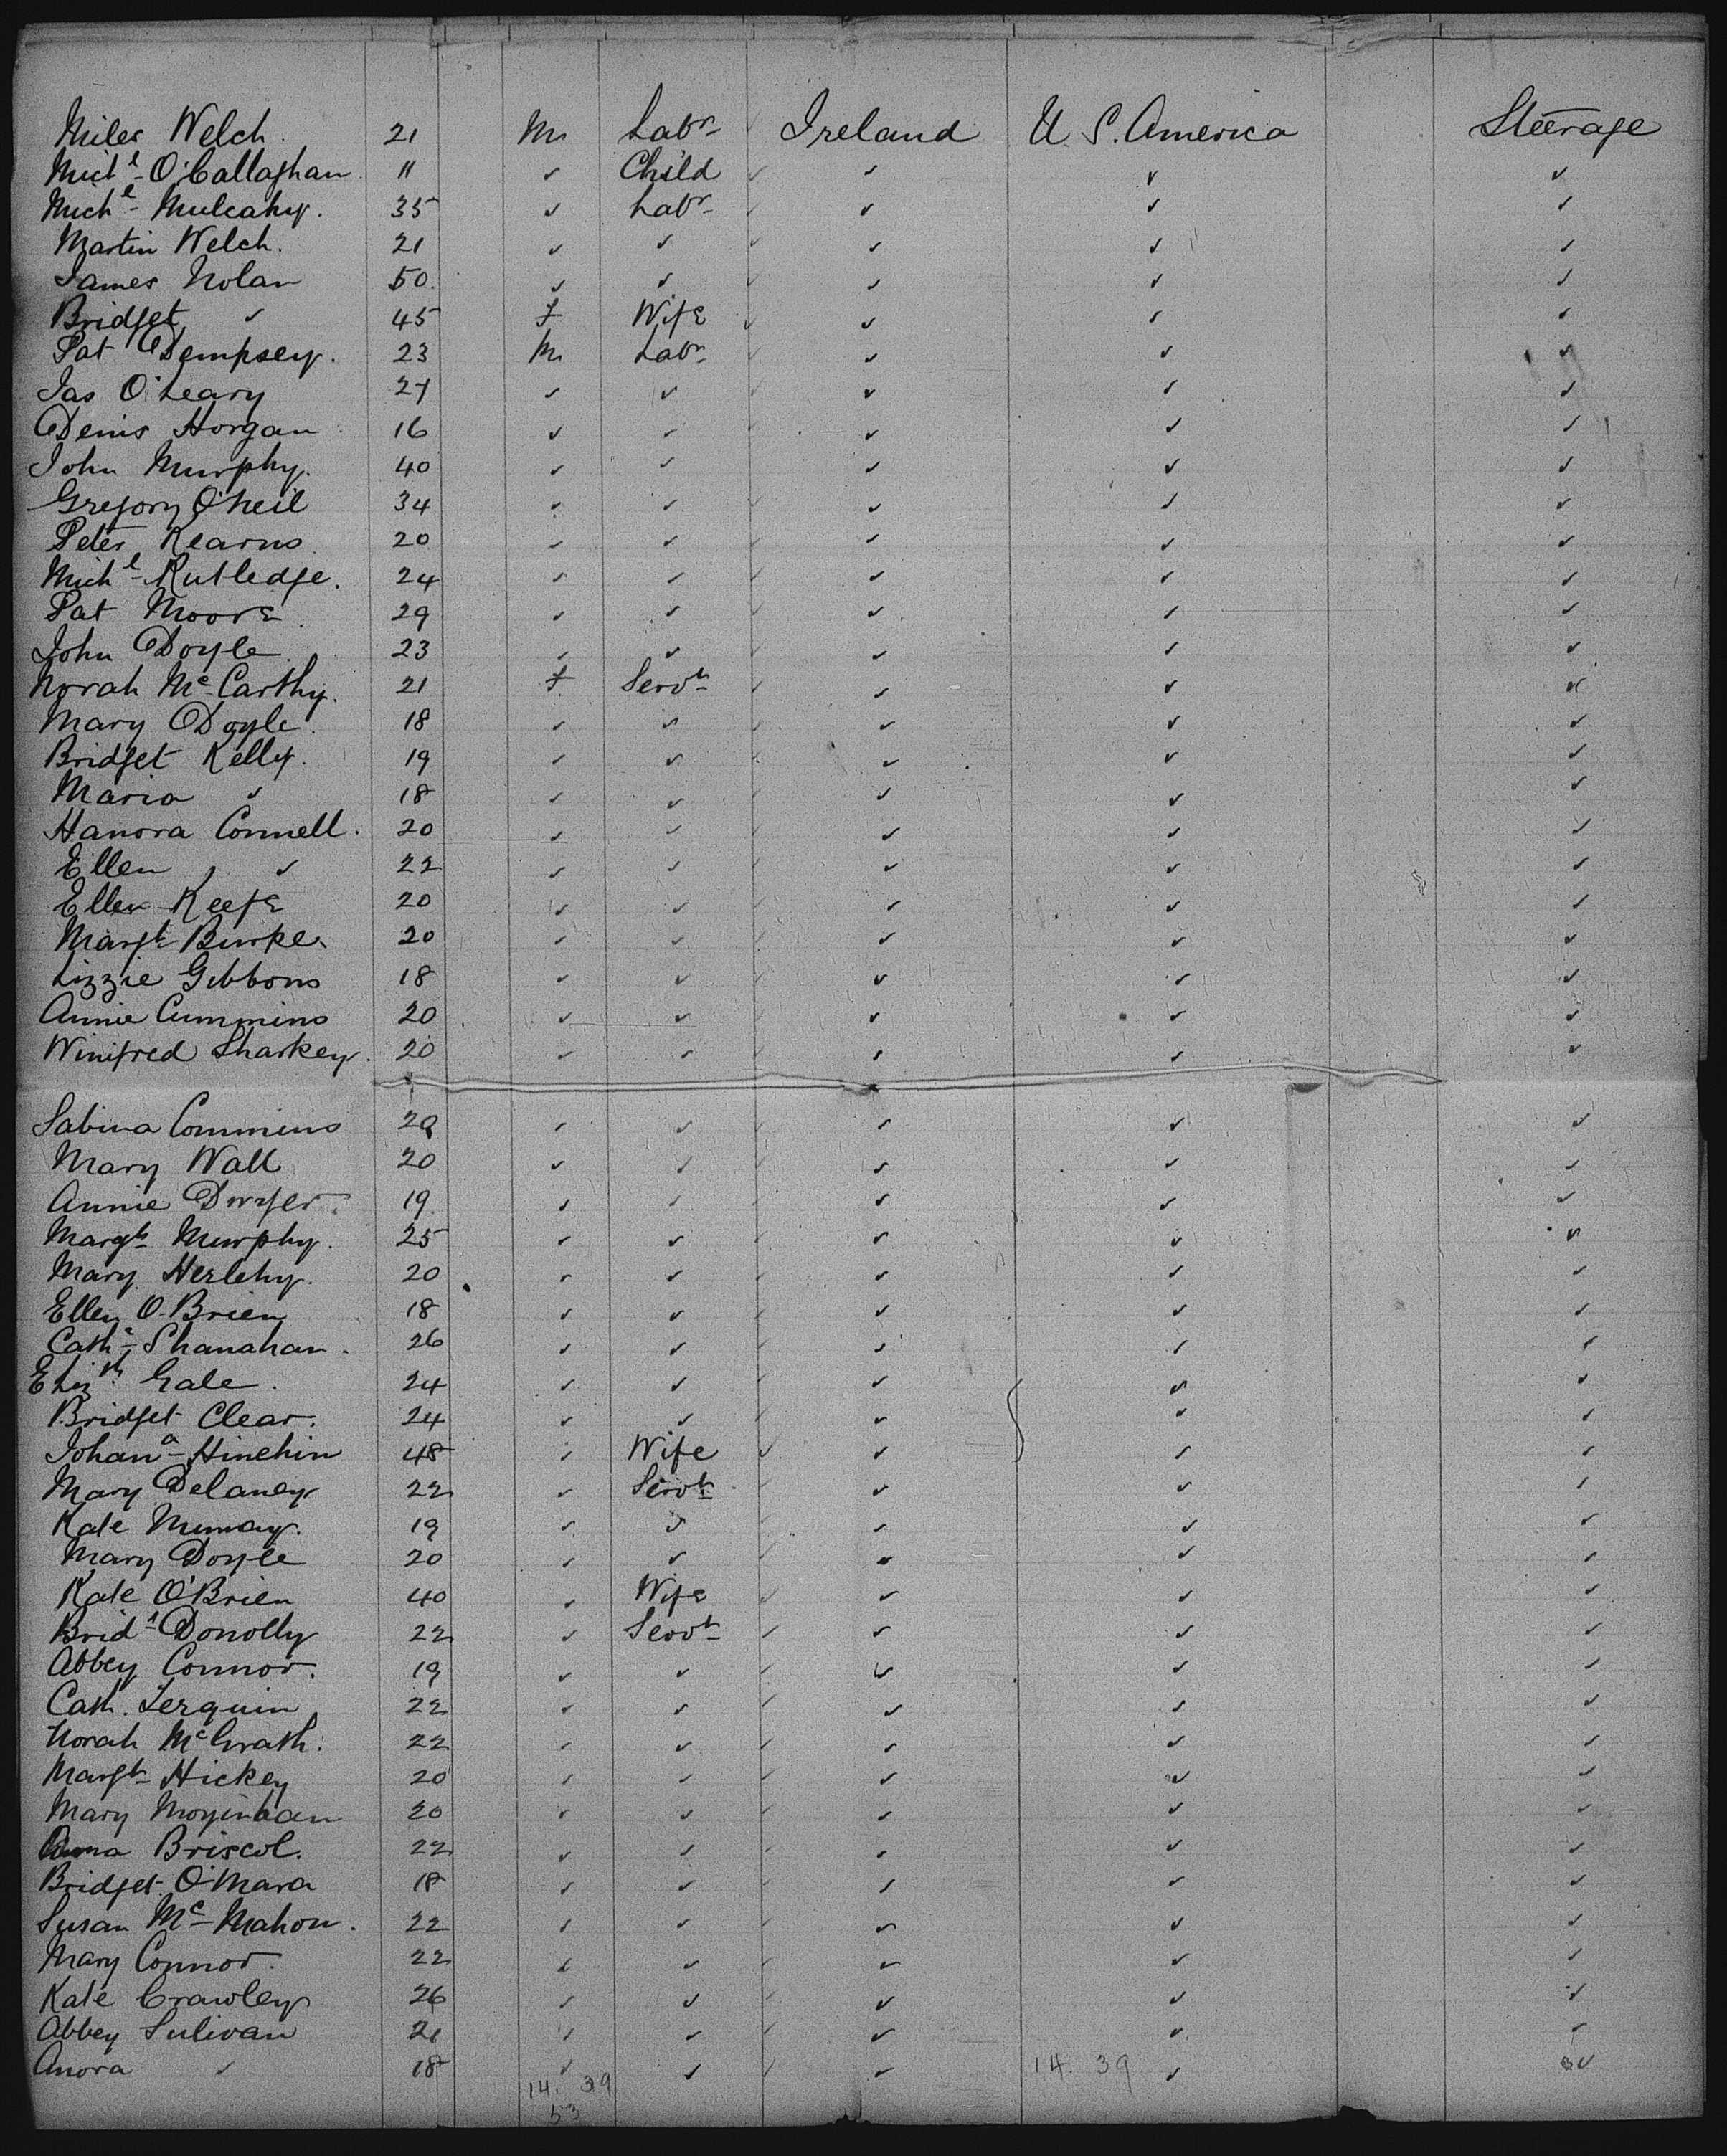 Miles Welch 21 M Labr Ireland U.S. America Steerage
Michl O'Callaghan 11 ✓ Child ✓ ✓ ✓ ✓
Michl Mulcahy. 35 ✓ Labr ✓ ✓ ✓
Martin Welch. 21 ✓ ✓ ✓ ✓ ✓ ✓
James Nolan 50. ✓ ✓ ✓ ✓ ✓ ✓
Bridget ✓ 45 F Wife ✓ ✓ ✓ ✓
Pat Dempsey. 23 M Labr ✓ ✓ ✓ ✓
Jas O'Leary 27 ✓ ✓ ✓ ✓ ✓ ✓
Denis Horgan 16 ✓ ✓ ✓ ✓ ✓ ✓
John Murphy. 40 ✓ ✓ ✓ ✓ ✓ ✓
Gregory O'Neil 34 ✓ ✓ ✓ ✓ ✓ ✓
Peter Kearns 20 ✓ ✓ ✓ ✓ ✓ ✓
Michl Rutledge. 24 ✓ ✓ ✓ ✓ ✓ ✓
Pat Moore. 29 ✓ ✓ ✓ ✓ ✓ ✓
John Doyle. 23 ✓ ✓ ✓ ✓ ✓ ✓
Norah McCarthy. 21 F Servt ✓ ✓ ✓ ✓
Mary Doyle. 18 ✓ ✓ ✓ ✓ ✓ ✓
Bridget Kelly. 19 ✓ ✓ ✓ ✓ ✓ ✓
Maria ✓ 18 ✓ ✓ ✓ ✓ ✓ ✓
Hanora Connell. 20 ✓ ✓ ✓ ✓ ✓ ✓
Ellen ✓ 22 ✓ ✓ ✓ ✓ ✓ ✓
Ellen Keefe 20 ✓ ✓ ✓ ✓ ✓ ✓
Margt Burke 20 ✓ ✓ ✓ ✓ ✓ ✓
Lizzie Gibbons 18 ✓ ✓ ✓ ✓ ✓ ✓
Annie Cummins 20 ✓ ✓ ✓ ✓ ✓ ✓
Winifred Sharkey. 20 ✓ ✓ ✓ ✓ ✓
Sabina Commins 20 ✓ ✓ ✓ ✓ ✓ ✓
Mary Wall 20 ✓ ✓ ✓ ✓ ✓ ✓
Annie Dwyer. 19. ✓ ✓ ✓ ✓ ✓ ✓
Margt Murphy. 25 ✓ ✓ ✓ ✓ ✓ ✓
Mary Herlehy. 20 ✓ ✓ ✓ ✓ ✓ ✓
Ellen O'Brien 18 ✓ ✓ ✓ ✓ ✓ ✓
Cathe Shanahan. 26 ✓ ✓ ✓ ✓ ✓ ✓
Elizth Gale. 24 ✓ ✓ ✓ ✓ ✓ ✓
Bridget Clear. 24 ✓ ✓ ✓ ✓ ✓ ✓
Johana Hinehin 48 ✓ Wife ✓ ✓ ✓ ✓
Mary Delaney 22 ✓ Servt ✓ ✓ ✓ ✓
Kate Murray. 19 ✓ ✓ ✓ ✓ ✓ ✓
Mary Doyle 20 ✓ ✓ ✓ ✓ ✓ ✓
Kate O'Brien 40 ✓ Wife ✓ ✓ ✓ ✓
Bridt Donolly 22 ✓ Servt ✓ ✓ ✓ ✓
Abbey Connor. 19 ✓ ✓ ✓ ✓ ✓ ✓
Cath. 22 ✓ ✓ ✓ ✓ ✓ ✓
Norah McGrath. 22 ✓ ✓ ✓ ✓ ✓ ✓
Margt Hickey 20 ✓ ✓ ✓ ✓ ✓ ✓
Mary Moynihan 20 ✓ ✓ ✓ ✓ ✓ ✓
Anna Briscol. 22 ✓ ✓ ✓ ✓ ✓ ✓
Bridget O'Mara 18 ✓ ✓ ✓ ✓ ✓ ✓
Susan McMahon. 22 ✓ ✓ ✓ ✓ ✓ ✓
Mary Connor. 22 ✓ ✓ ✓ ✓ ✓ ✓
Kate Crawley 26 ✓ ✓ ✓ ✓ ✓ ✓
Abbey Sulivan 21 ✓ ✓ ✓ ✓ ✓ ✓
Anora ✓ 18 ✓ ✓ ✓ ✓ 14. 39 ✓ ✓
14. 39
53